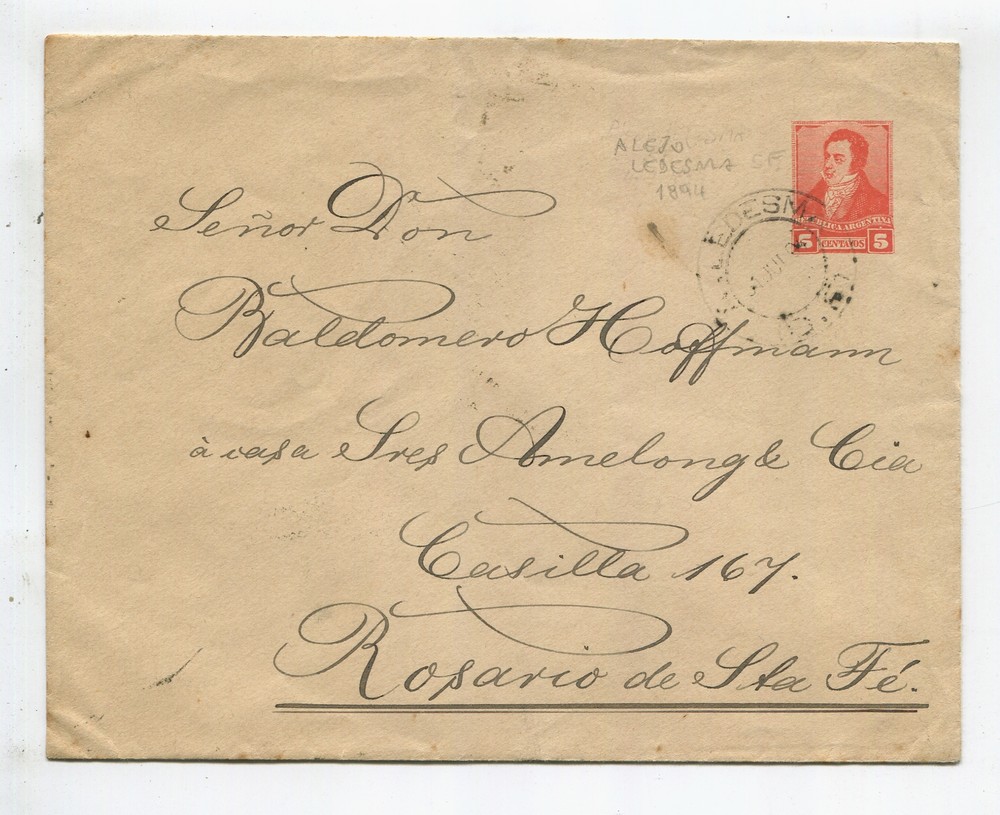 ALEJO
LEDESMA SF
1894
REPUBLICA ARGENTINA
5 CENTAVOS 5
LEDESM
Señor Don
Baldomero Hoffmann
à casa Sres Amelong & Cia
Casilla 167.
Rosario de Sta Fé.